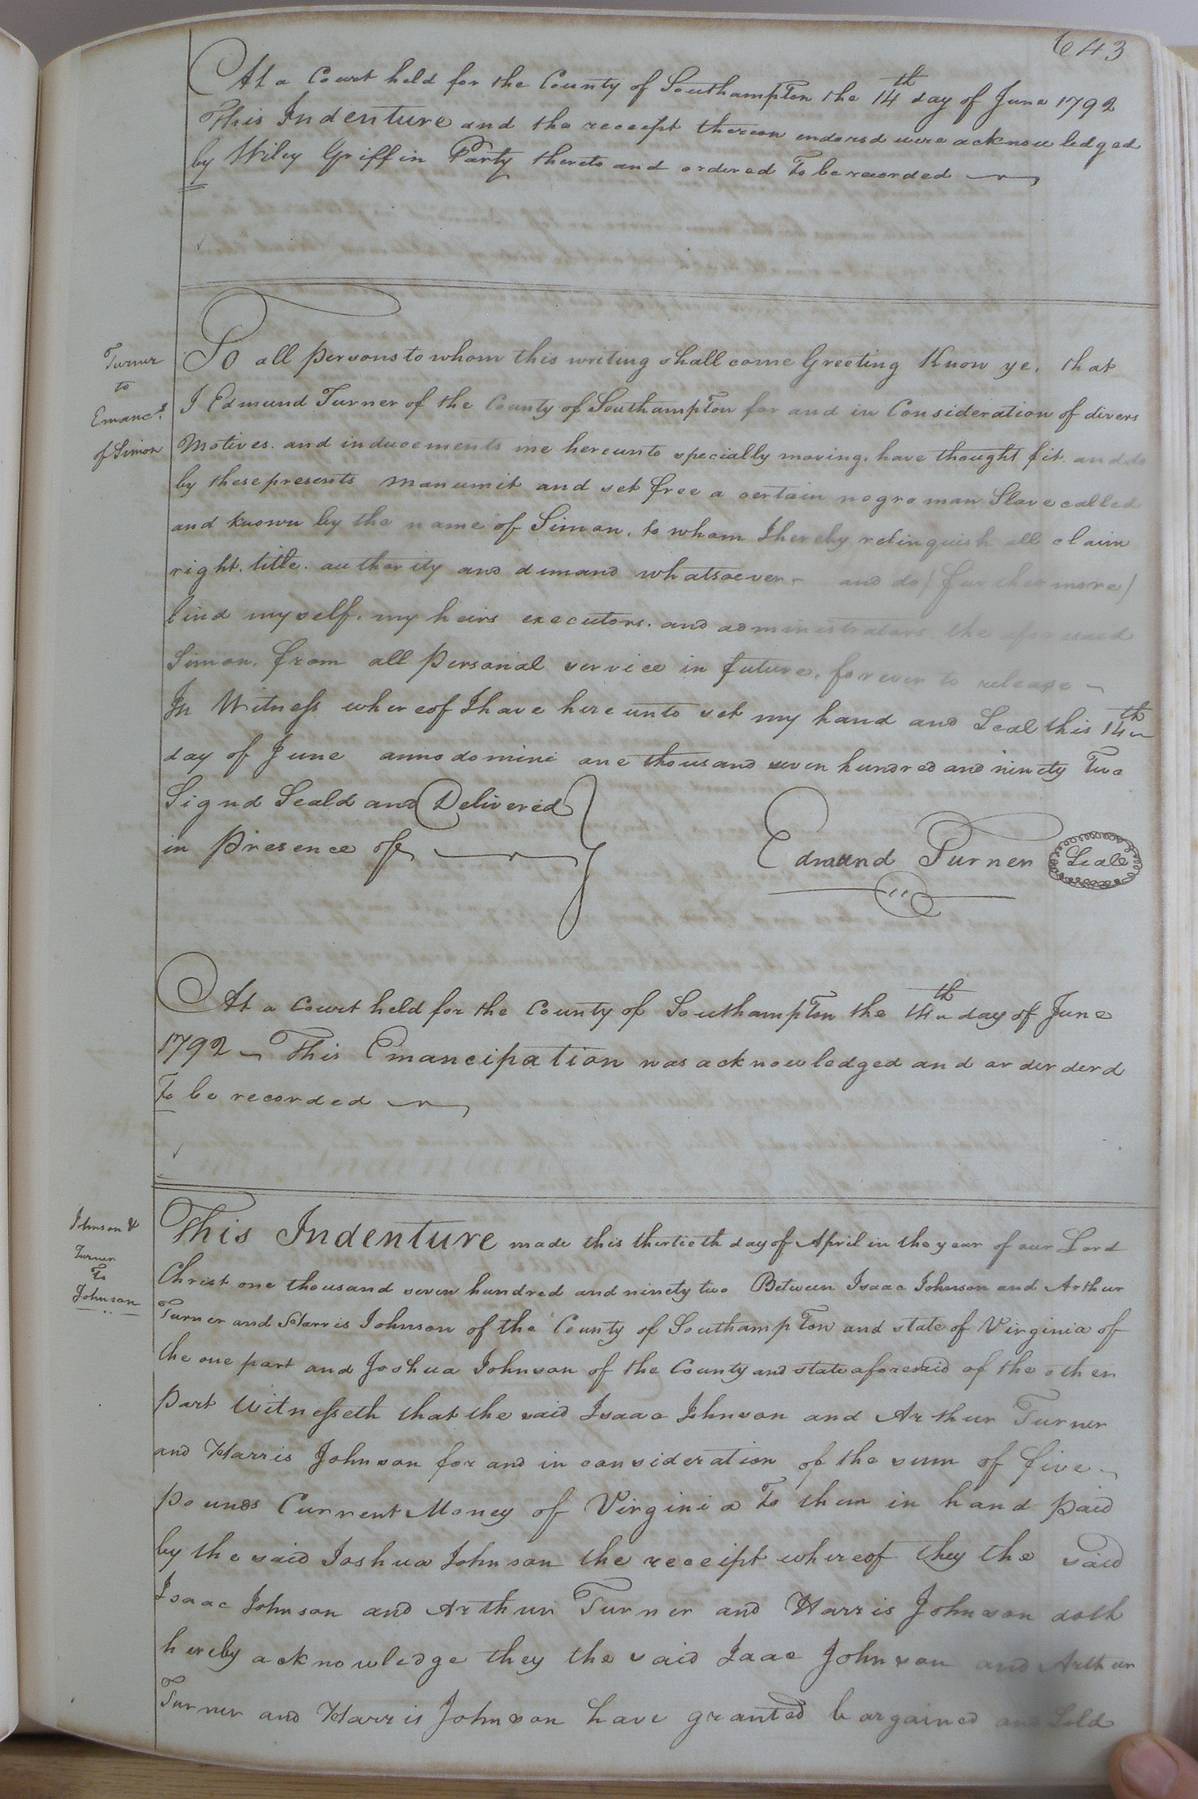 643
At a Court held for the County of Southampton the 14th day of June 1792
This Indenture and the receipt thereon endorsd were acknowledged
by Wiley Griffin Party thereto and ordered To be recorded
Turner
to
Emanc.n
of Simon
To all persons to whom this writing shall come Greeting Know ye, that
I Edmund Turner of the County of Southampton for and in Consideration of divers
Motives. and inducements me hereunto specially moving, have thought fit. and do
by these presents manumit and set free a certain negro man Slave called
and known by the name of Simon, to whom I hereby relinquish all claim
right. title. authority and demand whatsoever - and do (furthermore)
bind myself, my heirs executors. and administrators the aforesaid
Simon, from all personal service in future, forever to release
In Witness whereof I have hereunto set my hand and Seal this 14th
day of June anno domini one thousand seven hundred and ninety Two
Signd Seald and Delivered
in Presence of
Edmund Turner Seal
At a Court held for the County of Southampton the 14th day of June
1792 This Emancipation was acknowledged and orderderd
To be recorded
Johnson &
Turner
To
Johnson
This Indenture made this thirtieth day of April in the year of our Lord
Christ one thousand seven hundred and ninety two Between Isaac Johnson and Arthur
Turner and Harris Johnson of the County of Southampton and state of Virginia of
the one part and Joshua Johnson of the County and state aforesaid of the other
part Witnesseth that the said Isaac Johnson and Arthur Turner
and Harris Johnson for and in consideration of the sum of five
pounds Current Money of Virginia To them in hand paid
by the said Joshua Johnson the receipt whereof they the said
Isaac Johnson and Arthur Turner and Harris Johnson doth
hereby acknowledge they the said Isaac Johnson and Arthur
Turner and Harris Johnson have granted bargained and Sold